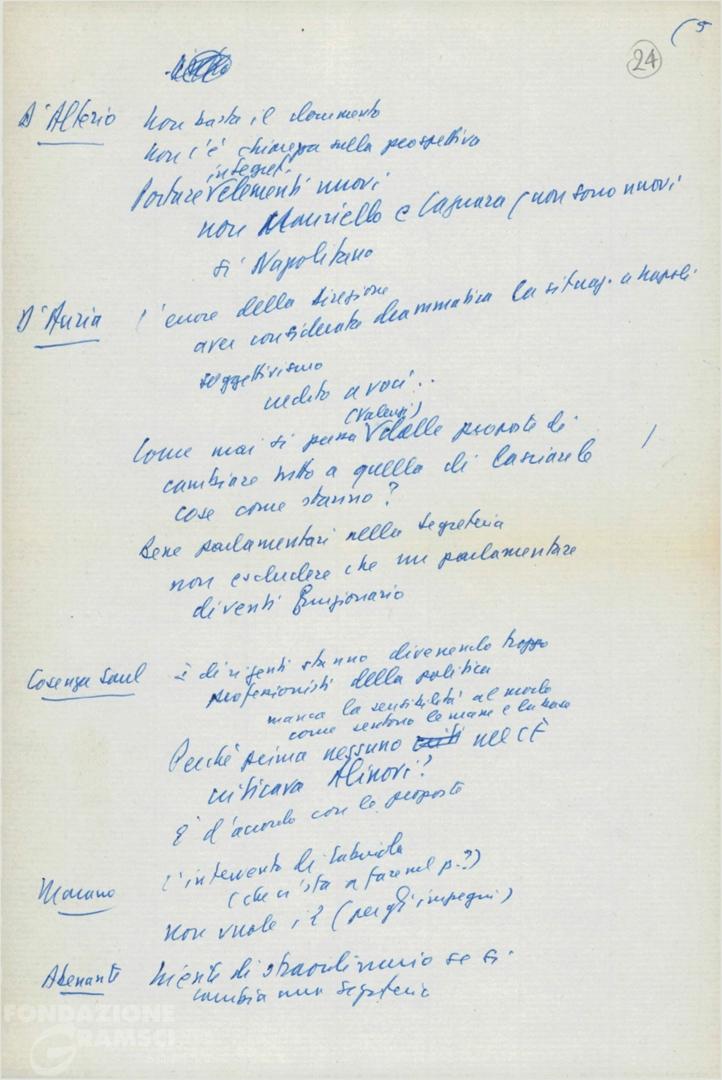 (5
24
D'Alterio non basta il documento
non c'è chiarezza sulla prospettiva
integrat.
Portare elementi nuovi
non Mauriello e Caguara (non sono nuovi
sì Napolitano
D'Auria L'errore della Direzione
aver considerato drammatica la situaz. a Napoli
soggettivismo
credito a voci..
(Valenzi)
Come mai si passa dalle proposte di
cambiare tutto a quella di lasciare le
cose come stanno?
Bene parlamentari nella segreteria
non escludere che un parlamentare
diventi funzionario
Cosenza Saul I dirigenti stanno divenendo troppo
professionisti della politica
manca la sensibilità al modo
come sentono le masse e la base
Perché prima nessuno nel CF
criticava Alinovi?
È d'accordo con le proposte
L'intervento di
(che ci sta a fare nel p.?)
non vuole (per gli impegni)
Abenante Niente di straordinario se si
cambia una segreteria
FONDAZIONE
GRAMSCI